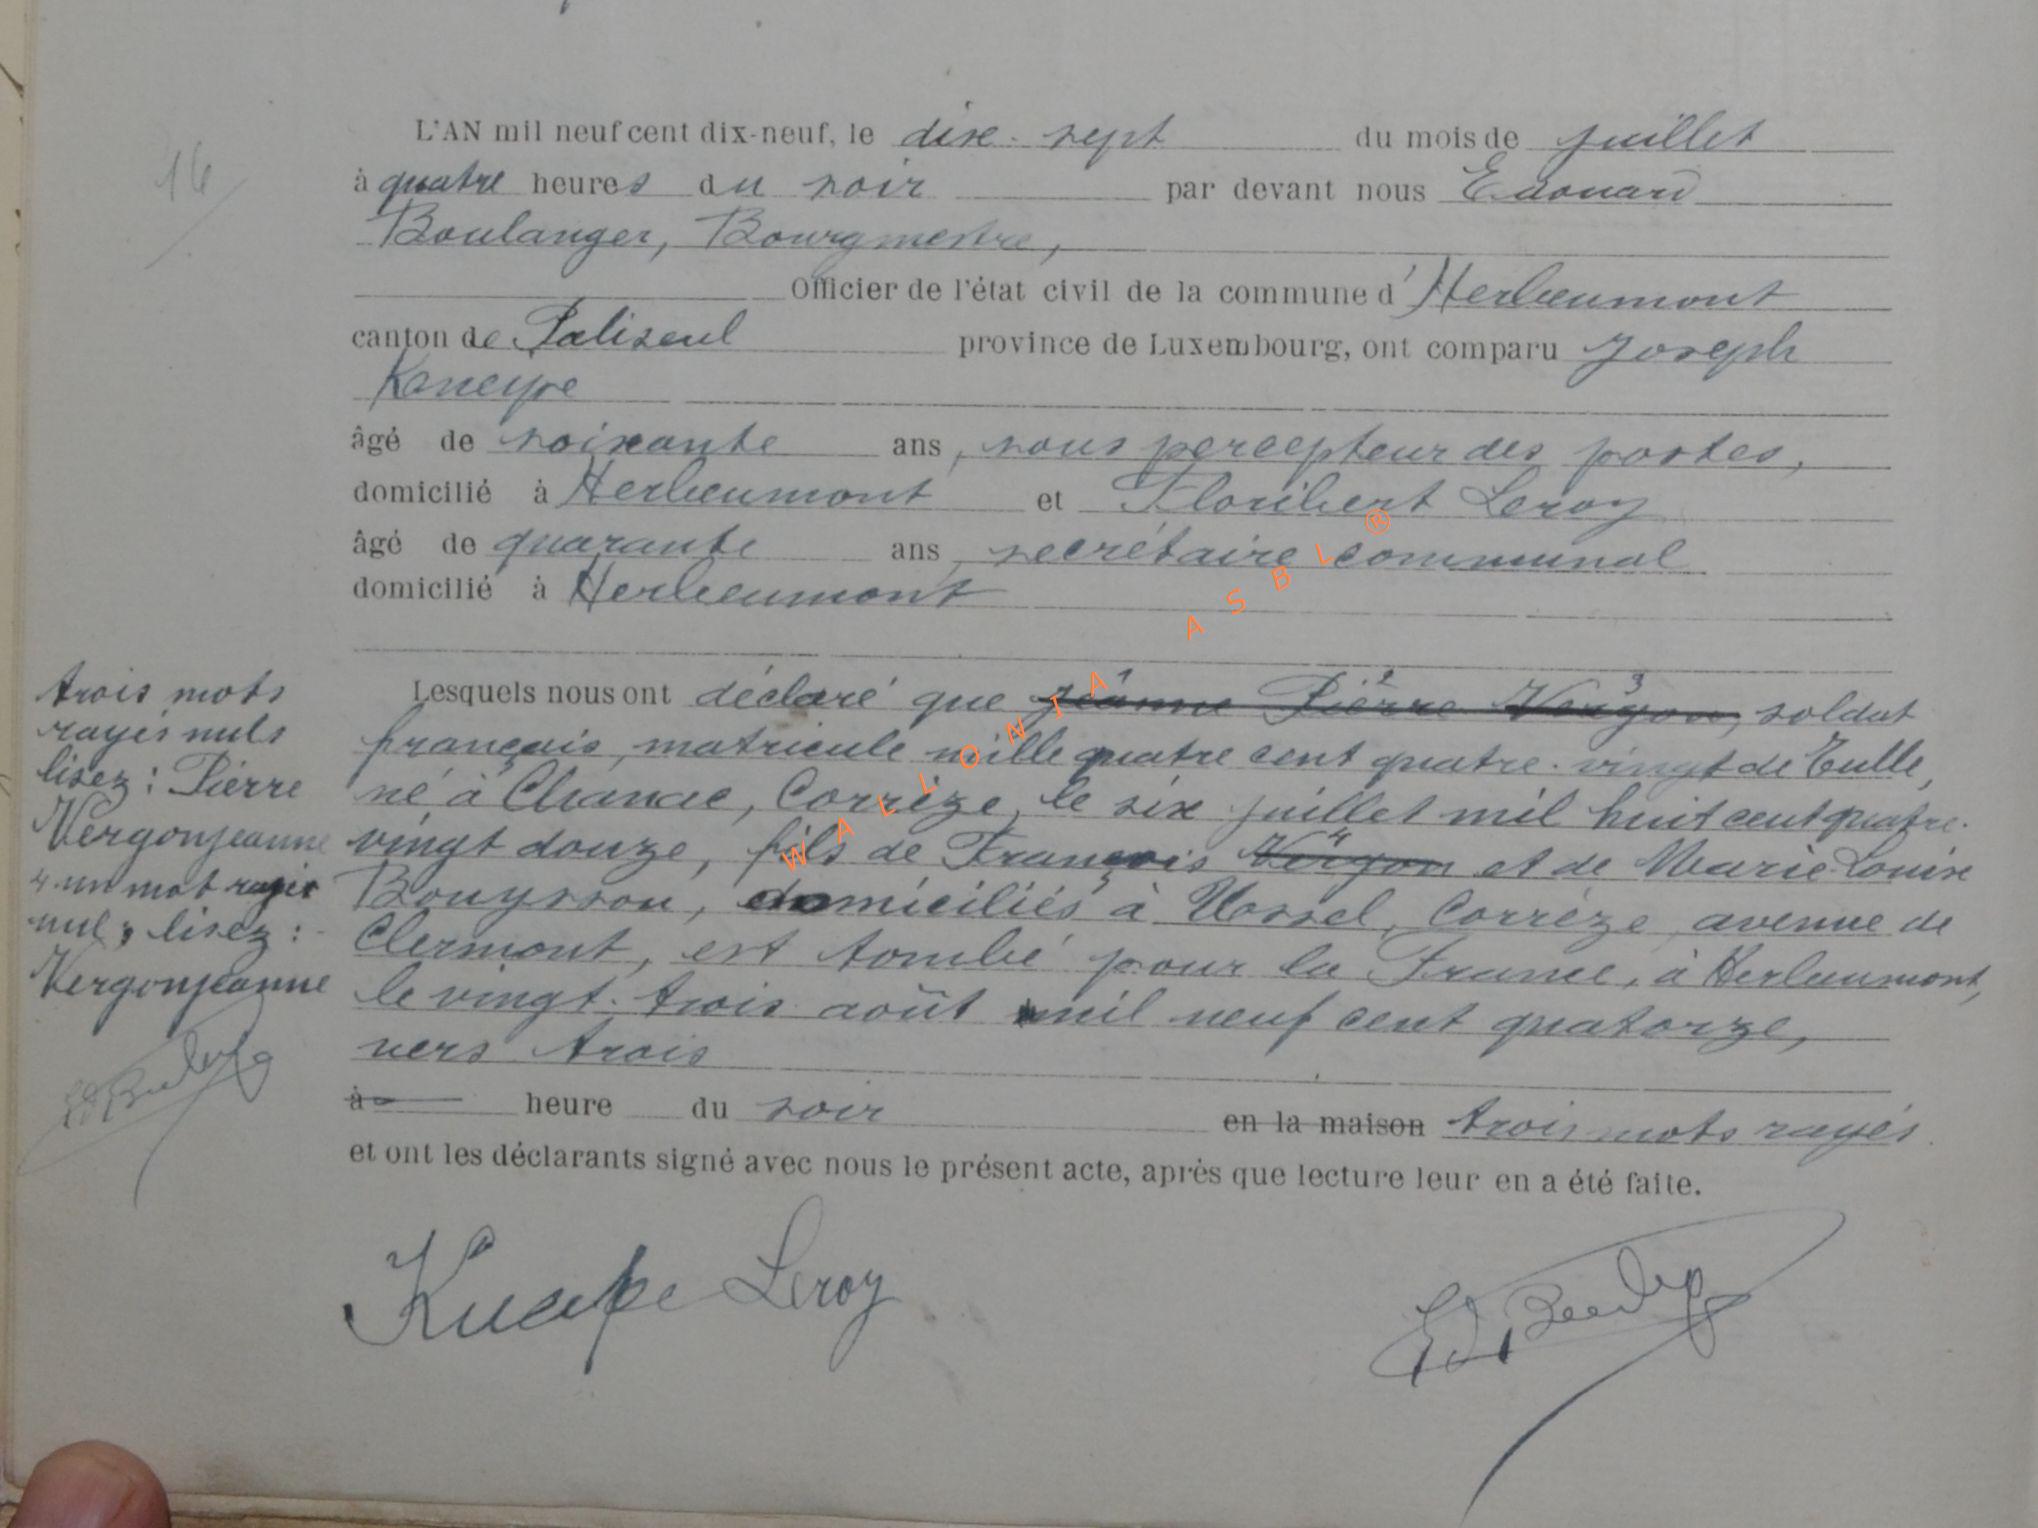 16
L'AN mil neuf cent dix-neuf, le dix-sept du mois de juillet
à quatre heures du soir par devant nous Edouard
Boulanger, Bourgmestre,
Officier de l'état civil de la commune d'Herbeumont
canton de Paliseul province de Luxembourg, ont comparu Joseph
Kneipe
âgé de soixante ans, sous percepteur des postes,
domicilié à Herbeumont et Floribert Leroy
âgé de quarante ans, secrétaire communal
domicilié à Herbeumont
Lesquels nous ont déclaré que Jeanne 1 Pierre 2 Vergon 3, soldat
français, matricule mille quatre cent quatre-vingt de Tulle,
né à Chanac, Corrèze, le six juillet mil huit cent quatre-
vingt douze, fils de François Vergon 4 et de Marie-Louise
Bouysson, domiciliés à Ussel, Corrèze, avenue de
Clermont, est tombé pour la France, à Herbeumont,
le vingt-trois août mil neuf cent quatorze,
vers trois
à heure du soir en la maison trois mots rayés
et ont les déclarants signé avec nous le présent acte, après que lecture leur en a été faite.
trois mots
rayés nuls
lisez : Pierre
Vergonjeanne
4. un mot rayé
nul ; lisez :
Vergonjeanne
Leroy
WALLONIA ASBL ®